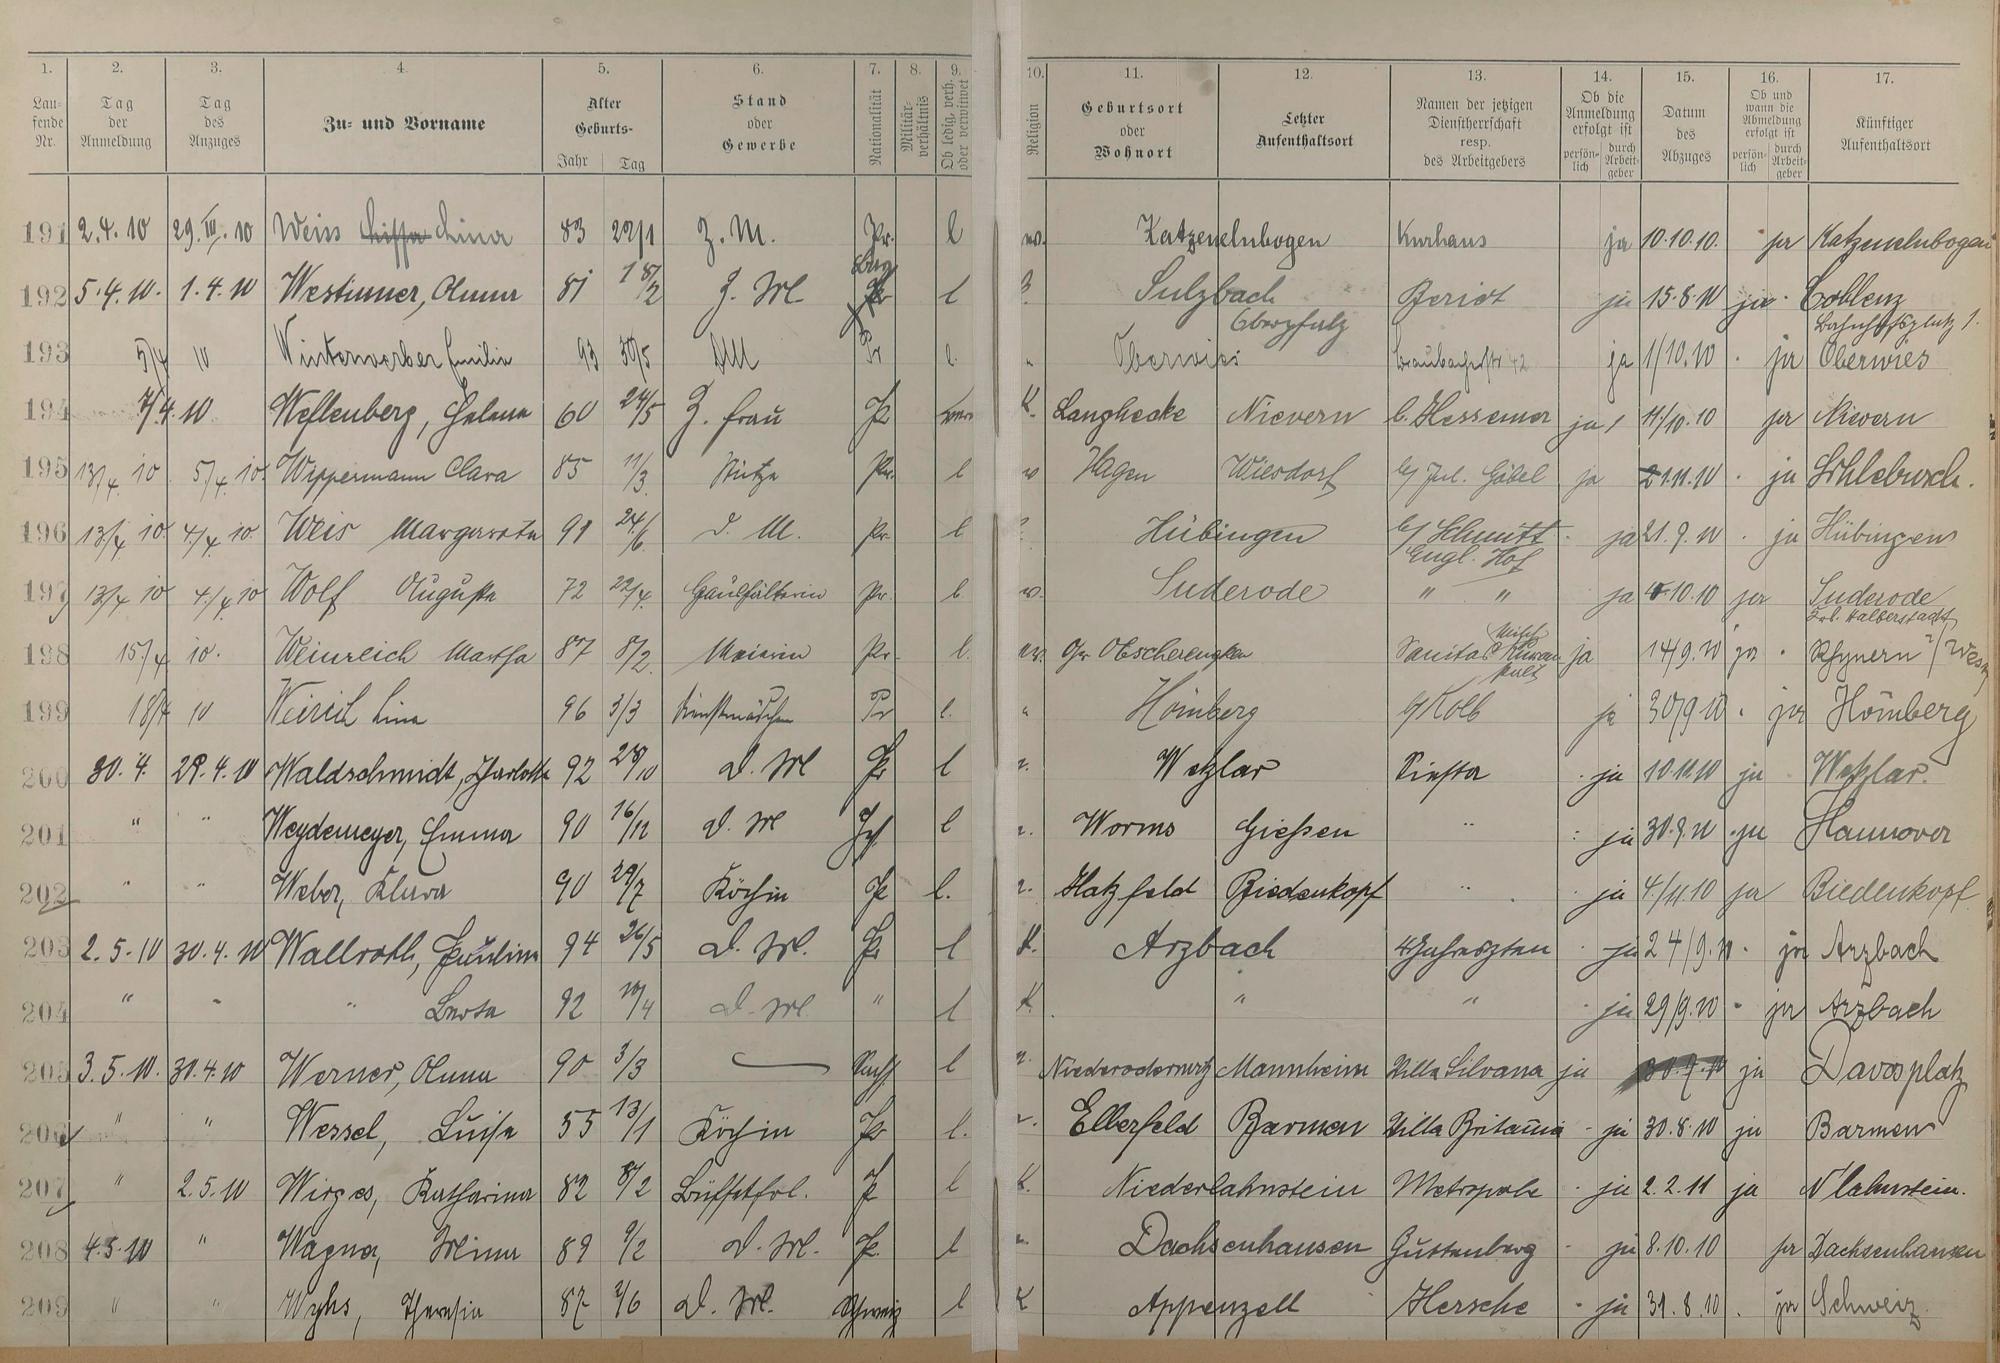 1. 2. 3. 4. 5. 6. 7. 8. 9. 10. 11. 12. 13. 14. 15. 16. 17.
Lau- fende Nr. Tag der Anmeldung Tag des Anzuges Zu- und Vorname Alter Geburts- Jahr Tag Stand oder Gewerbe Nationalität Militär- verhältnis Ob ledig, verh. oder verwitwet Religion Geburtsort oder Wohnort Letzter Aufenthaltsort Namen der jetzigen Dienstherrschaft resp. des Arbeitgebers Ob die Anmeldung erfolgt ist persön- lich durch Arbeit- geber Datum des Abzuges Ob und wann die Abmeldung erfolgt ist persön- lich durch Arbeit- geber Künftiger Aufenthaltsort
191 2.4.10 29.III.10 Weiss Lina 83 22/1 Z. M. Pr. l Katzenelnbogen Kurhaus ja 10.10.10. ja Katzenelnbogen
192 5.4.10. 1.4.10 Westinner, Anna 81 18/2 Z. M. Pr l Sulzbach ja 15.8.10 ja Coblenz
Oberpfalz Bahnhofsplatz 1.
193 5/4 10 Winterwerber Emilie 93 30/5 DM Pr l. " Oberwies ja 1/10.10 ja Oberwies
194 7/4.10 Weflenberg, Helene 60 24/5 Z. frau Pr K. Langhecke Nievern b. Hessemer ja 11/10.10 ja Nievern
195 13/4 10 5/4.10. Wippermann Clara 85 11/3 Stütze Pr. l Hagen Wiesdorf b/ Jul. Göbel ja 1.11.10 ja Schlebusch.
196 13/4 10 4/4 10. Weis Margareta 91 24/6 D. M. Pr. l Hübingen b/ Schmitt ja 21.9.10 ja Hübingen
Engl. Hof
197 13/4 10 4/4 10 Wolf Auguste 72 22/4. Haushälterin Pr. l Suderode " " ja 10.10 ja Suderode
Halberstadt
198 15/4 10. Weinreich Martha 87 8/2 Meierin Pr. l. Gr Obscherningken Sanitas Milch Kuranstalt ja 14/9.10 ja Rhynern i/ West
199 18/4 10 Weirich Lina 96 3/3 Dienstmädchen Pr l. " Hömberg b/ Kolb ja 30/9 10 ja Hömberg
200 30.4. 29.4.10 Waldschmidt, Charlotte 92 28/10 D. M Pr l Wetzlar ja 10.11.10 ja Wetzlar.
201 " " Weydemeyer, Emma 90 16/12 D. M l Worms Gießen " ja 30.9.10 ja Hannover
202 " " Weber, Klara 90 29/7 Köchin Pr l. Hatzfeld Biedenkopf " ja 4/11.10 ja Biedenkopf
203 2.5.10 30.4.10 Wallroth, Pauline 94 26/5 D. M. Pr l K. Arzbach 4 Jahreszten ja 24/9.10 ja Arzbach
204 " " " Berta 92 10/4 D. M. " l K. " " ja 29/9.10 ja Arzbach
205 3.5.10. 30.4.10 Werner, Anna 90 3/3 Sachs. l Mannheim Villa Silvana ja ja Davosplatz
206 " " Wessel, Luise 55 13/1 Köchin Pr l. Elberfeld Barmen Villa Britania ja 30.8.10 ja Barmen
207 " 2.5.10 Wirges, Katharina 82 8/2 Büffetfrl. Pr l K. Niederlahnstein Metropole ja 2.2.11 ja N'lahnstein.
208 4.5.10 " Wagner, Mina 89 9/2 D. M. Pr. l Dachsenhausen Guttenberg ja 8.10.10 ja Dachsenhausen
209 " " Wyhs, Theresia 87 2/6 D. M. Schweiz l K Appenzell Hersche ja 31.8.10. ja Schweiz